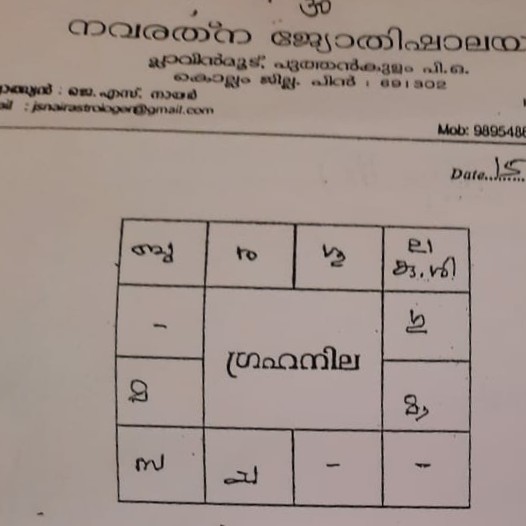 ഓം
നവരത്ന ജ്യോതിഷാലയ
പ്ലാവിൻമൂട്, പുത്തൻകുളം പി.ഒ.
കൊല്ലം ജില്ല. പിൻ : 691302
ജെ.എസ്. നായർ
: jsnairastrologer@gmail.com
Mob: 9895488
Date.......... 15
ബു ര ശു ല
കു. ശി
- ഗു
ഗ്രഹനില
മാ
സ ച - -